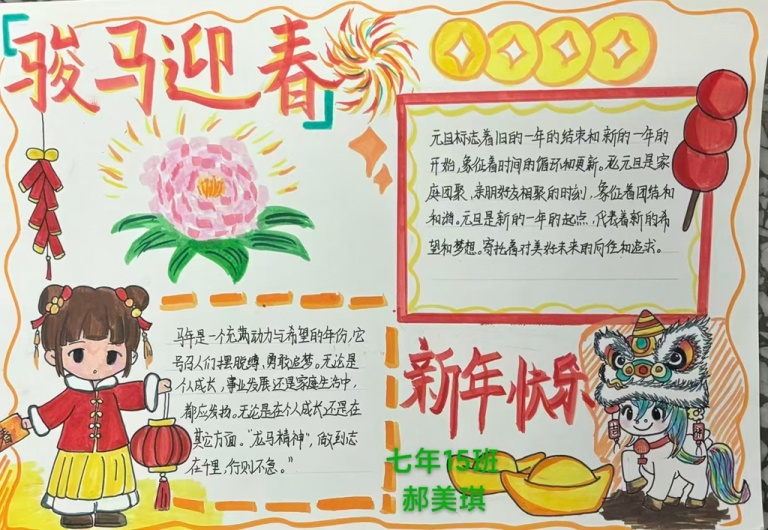 骏马迎春
元旦标志着旧的一年的结束和新的一年的
开始,象征着时间的循环和更新。元旦是家
庭团聚、亲朋好友相聚的时刻,象征着团结和
和谐。元旦是新的一年的起点,代表着新的希
望和梦想。寄托着对美好未来的向往和追求。
马年是一个充满动力与希望的年份,它
号召人们摆脱束缚,勇敢追梦。无论是
个人成长,事业发展还是家庭生活中,
都应发扬。无论是在个人成长还是在
其它方面。“龙马精神”,做到志
在千里,行则不怠。”
新年快乐
春
七年15班
郝美琪